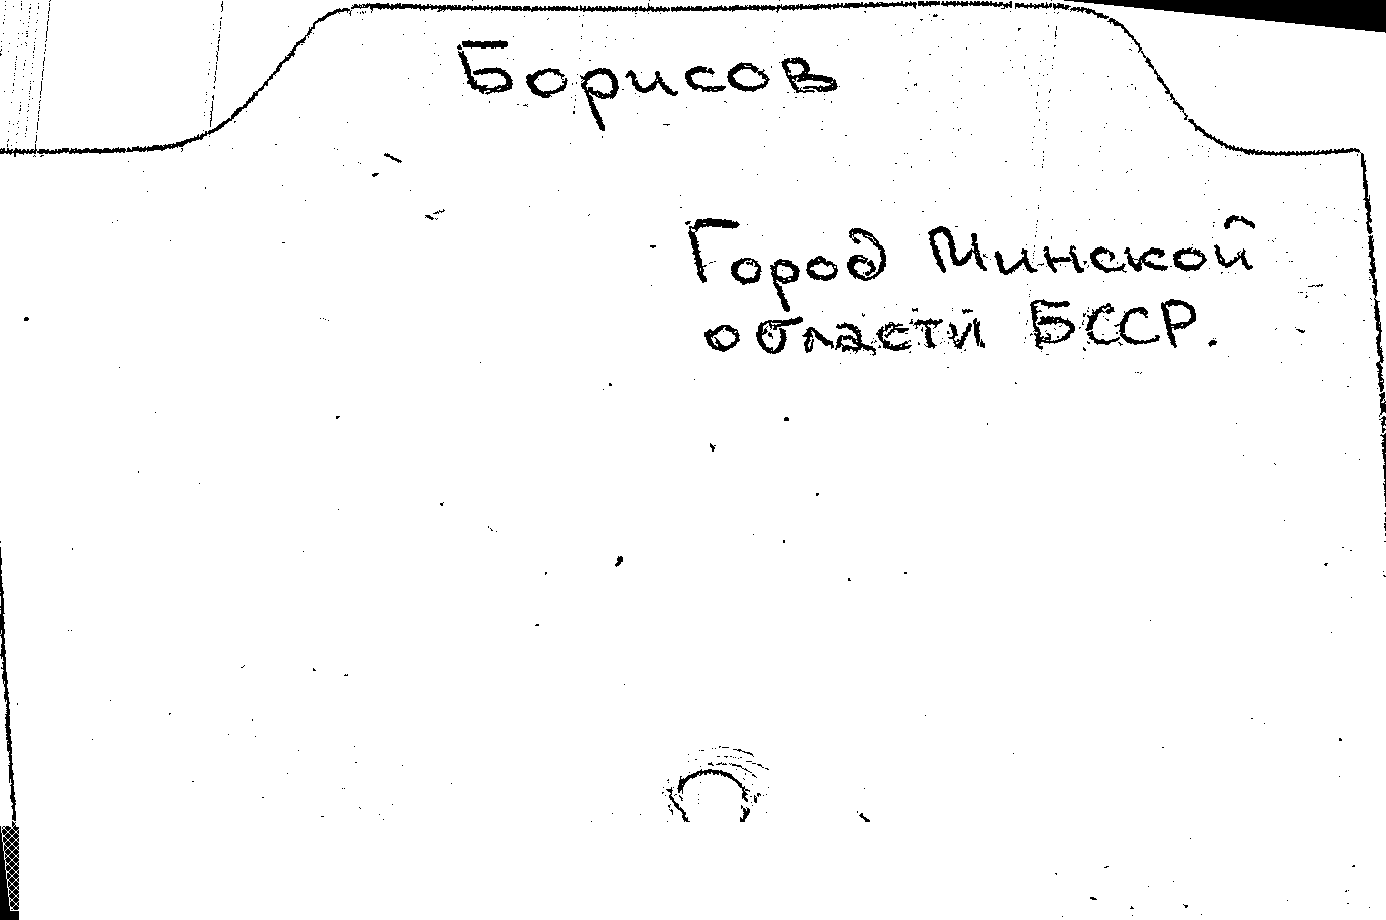 Борисов
Город Минской
области БССР.